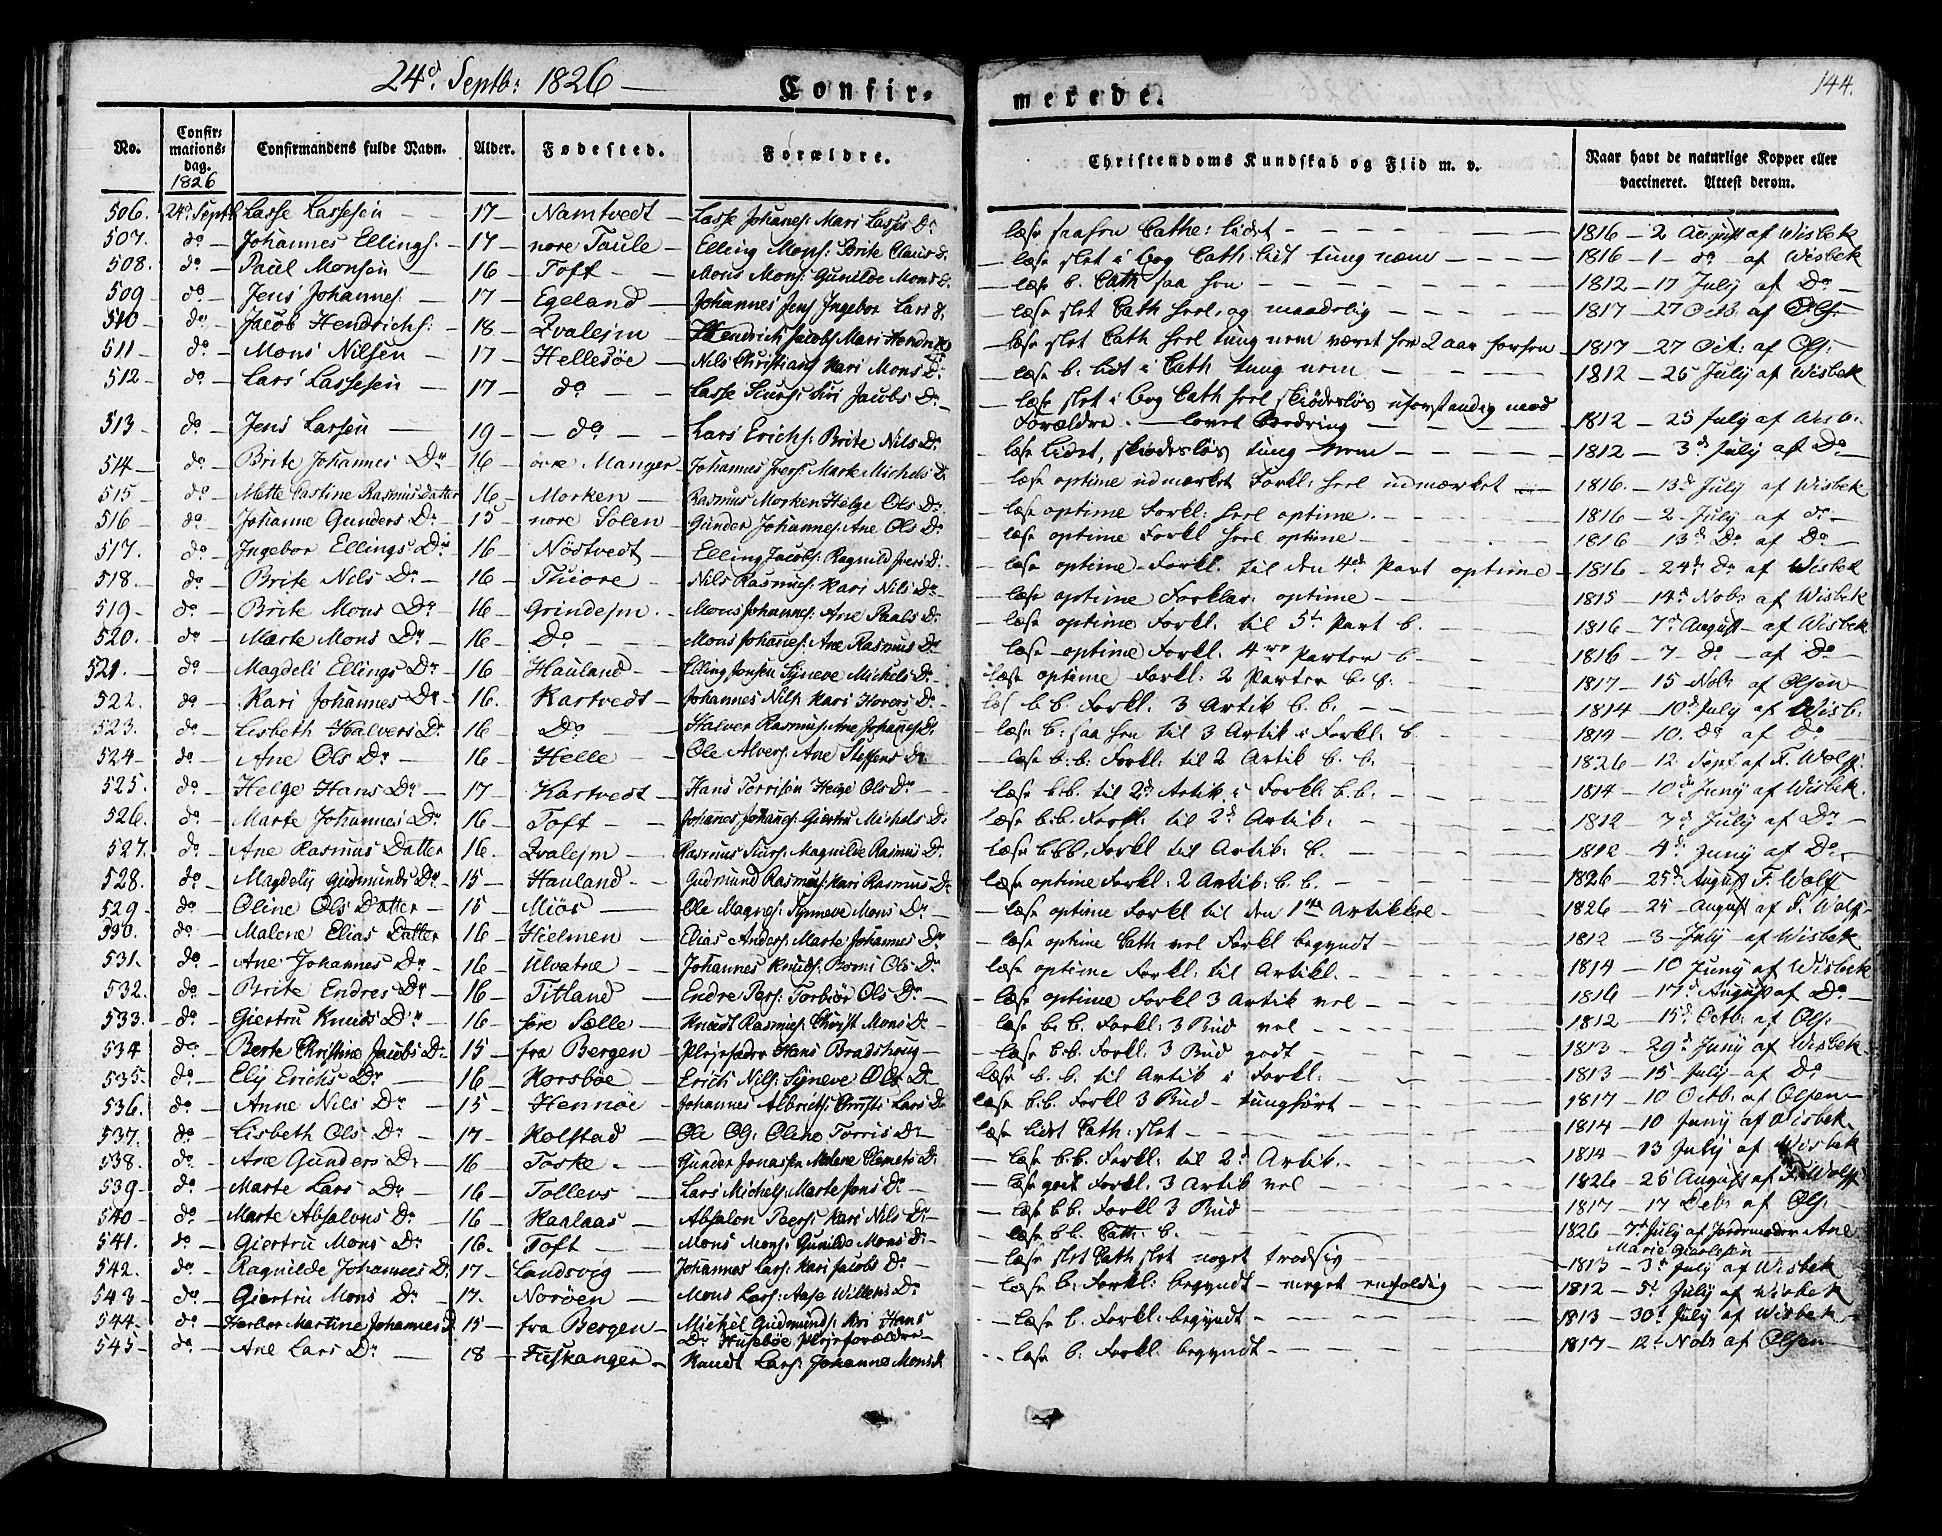 24d Septb: 1826 —
Confir-
merede.
144.
No.
Confir-mations-dag.
1826
Confirmandens fulde Navn.
Alder.
Fødested.
Forældre.
Christendoms Kundskab og Flid m. v.
Naar havt de naturlige Kopper eller vaccineret. Attest derom.
506. 24d Septb Lasse Lassesen — 17 — Namtvedt — Lasse Johanes: Mari Lasses Dr læse saasnn Cathe: lidet — 1816 — 2 August af Wisbek
507. do — Johannes Ellings: — 17 — nore Taule — Elling Mons: Brite Claus d. — læse slet i bog Cath: lidt tung nem — 1816 — 1 — do — af Wisbek
508. do — Paul Monsen — 16 — Toft — Mons Mons: Gunilde Mons — læse b. Cath saa hen — 1812 — 17 July af Do —
509 — do — Jens Johannes: — 17 — Egeland — Johannes Jens Ingebor Lars d. — læse slet Cath heel, og maadelig — 1817 — 27 Octb. af Ols:
510 — do — Jacob Hendrichs: — 18 — Qvalejm — Hendrich Jacobs Mari Hendr — læse slet Cath heel tung nem været her 2 aar forhen — 1817 — 27 Oct: af Ols:
511 — do — Mons Nilsen — 17 — Hellesöe — Nils Christians Kari Mons Dr — læse b: lidt i Cath tung nem — 1812 — 26 July af Wisbek
512 — do — Lars Lassesen — 17 — do — Lasse Siurs: Siri Jacobs Dr — læse slet i bog Cath heel skiödeslös uforstandig med
513 — do — Jens Larsen — 19 — do — Lars Erichs: Brite Nils Dr Forældre. — lovet bedring — 1812 — 25 July af Wisb:
514 — do — Brite Johannes Dr — 16 — övre Manger — Johannes Ivers: Mark Michels D — læse lidet, skiödeslös tung nem — 1812 — 3d July af Do
515 — do — Mette Castine Rasmusdatter 16 — Morken — Rasmus Morken Helge Ols Dr — læse optime udmærket Forkl: heel udmærket — 1816. — 13d July af Wisbek
516 — do — Johanne Gunders Dr 15 — nore Solen — Gunder Johannes: Ane Ols Dr — læse optime Forkl: heel optime. — 1816 — 2 July af do —
517. do — Ingebor Ellings Dr 16 — Nöstvedt — Elling Jacobs: Ragnild Ivers D: — læse optime Forkl heel optime — 1816 — 13d Do af Do —
518. do — Brite Nils Dr — 16 — Thiore — Nils Rasmus: Kari Nils Dr — læse optime Forkl. til den 4de Part optime — 1816 — 24d Do af Wisbek
519 — do — Brite Mons Dr — 16 — Grindejm — Mons Johannes: Ane Paals Dr — læse optime Forklar: optime — 1815 — 14d Nobr af Wisbek
520. do — Marte Mons Dr — 16 — Do — Mons Johanes: Ane Rasmus Dr — læse optime Forkl. til 5t Part b. — 1816 — 7d August af Wisbek
521. do — Magdeli Ellings Dr — 16 — Hauland — Elling Jonsen Synneve Michels Dr — læse optime Forkl: 4re Parter b — 1816 — 7 do — af Do —
522. do — Kari Johannes Dr — 16. — Kartvedt — Johannes Nils: Kari Hovers: Dr — læse optime Forkl: 2 Parter b. g. — 1817 — 15 Nobr af Olsen
523. do — Lisbeth Halvers Dr 16 — Do — Halver Rasmus: Ane Johanes D. læs b.b. Forkl: 3 Artik b. b. — 1814 — 10d July af Wisb.
524 — do — Ane Ols Dr — 16 — Helle — Ole Alvers: Ane Steffens Dr — læse b: saa hen til 3 Artik i Forkl: b. — 1814 — 10. do af Do —
525. do — Helge Hans Dr — 17 — Kartvedt — Hans Torrisen Helge Ols Dr — læse b: b: Forkl: til 2 Artik b. b. — 1826 — 12 Sept af F. Wolff:
526. do — Marte Johannes Dr 16 — Toft — Johanes Johanes: Giertru Michels D. læse b.b. til 2d Artik i Forkl: b.b: — 1814 — 10d Juny af Wisbek.
527. do — Ane Rasmus Datter 16. — Qvalejm — Rasmus Siurs: Magnilde Rasmus D. læse b.b. Forkl: til 2d Artik: — 1812 — 7d July af Dr —
528. do — Magdelij Gudmunds Dr 15 — Hauland — Gudmund Rasmus: Kari Rasmus Dr læse b.bb. Forkl til Artik: b. — 1812 — 4d Juny af Do —
529 — do — Oline Ols Datter — 15 — Miös — Ole Magnes: Synneve Mons Dr læse optime Forkl: 2 Artik: b. b. — 1826 — 25d August F. Wolff
530. do — Malene Elias Datter 16 — Hielmen — Elias Anders: Marte Johannes Dr — læse optime Forkl til den 1ste Artikkel — 1826 — 25 — August af F. Wolf
531. do — Ane Johannes Dr — 16 — Ulvatne — Johannes Knuds: Borni Ols Dr — læse optime Cath vel Forkl begyndt — 1812 — 3 July af Wisbek
532. do — Brite Endres Dr — 16 — Titland — Endre Pers: Torbiör Ols Dr — læse optime Forkl: til Artikl. — 1814 — 10 Juny af Wisbek
533. do — Giertru Knuds Dr — 16 — söre Sælle — Knudt Rasmus: Christi Mons Dr — læse optime Forkl 3 Artik vel — 1816 — 17d August af Do —
534 do — Berte Christine Jacobs Dr 15 — fra Bergen — Plejefader Hans Bradshoug — læse b. b. Forkl: 3 Bud vel — 1812 — 15d Octb: af Ols:
535. do — Elij Erichs Dr — 16 — Korsböe — Erich Nils: Synneve Ols Dr — læse b.b. Forkl: 3 Bud godt — 1813 — 29d Juny af Wisbek
536. do — Anne Nils Dr — 15 — Hennöe — Johannes Albrichts: Christi Lars Dr læse b. b. til Artik i Forkl: — 1813 — 15 July af Do
537. do — Lisbeth Ols Dr — 17 — Kolstad — Ole Ols: Oline Torris Dr — læse b.b. Forkl 3 Bud — tunghört — 1817 — 10 Octb: af Olsen
538. do — Ane Gunders Dr — 16 — Toske — Gunder Jonassen Malene Clemets Dr læse lidt Cath: slet — 1814 — 10 Juny af Wisbek
539 — do — Marte Lars Dr — 16 — Tollevs — Lars Michels: Marte Jens Dr — læse b.b. Forkl: til 2d Artik. — 1814 — 13 July af Wisbek
540 — do — Marte Absalons Dr — 16 — Kaalaas — Absalon Peers: Kari Nils Dr — læse godt Forkl: 3 Artik vel — 1826 — 26 August af F. Wolff
541. do — Giertru Mons Dr — 16. — Toft — Mons Mons: Gunilde Mons Dr — læse bb. Forkl 3 Bud — 1817 — 17 Debr af Ols:
542. do — Ragnilde Johannes Dr 17 — Landsvig — Johannes Lars: Kari Jacobs Dr — læse bb. Cath: b. — 1826 — 7d July af Jordemoder Ane Marie
543 — do — Giertru Mons Dr — 17. — Noröen — Mons Lars: Aase Willems Dr — læse slet Cath slet noget trodsig — 1813 — 3d July af Wisbek
544. do — Herber Martine Johannes D. 15 — fra Bergen — Michel Gudmunds: Siri Hans Dr Husebøe Plejeforældre — læse b: Forkl: begyndt — meget enfoldig — 1812 — 5d July af Wisbek
545 — do — Ane Lars Dr — 18 — Fieskanger — Knudt Lars: Johanne Mons d. — læse b. Forkl: begyndt — 1813 — 30d July af Wisbek
læse b: Forkl: begyndt — 1817 — 12d Nobr af Olsen